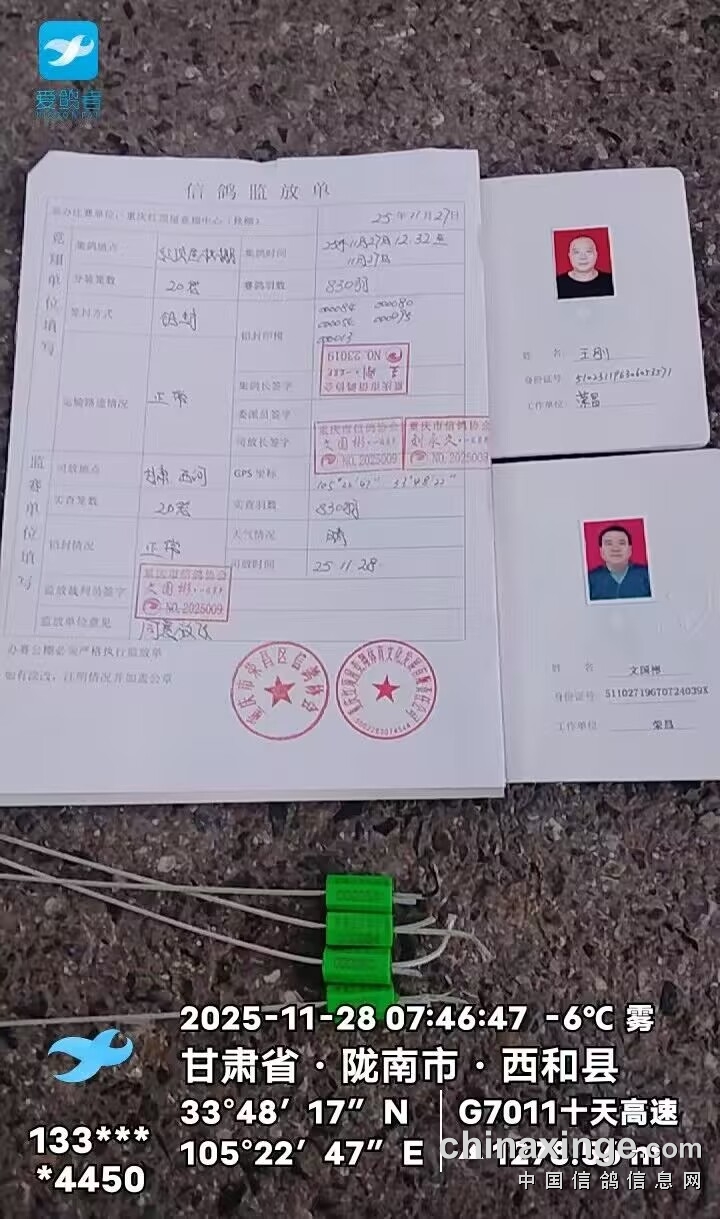 爱鸽者
信鸽监放单
25年11月27日
集鸽地点
集鸽时间
25年11月27日 12:32
11月27日
分装笼数
20笼
赛鸽羽数
830羽
签封方式
铅封
铅封印模
000084 000080
000013
NO.23019
重庆市信鸽协会
运输路途情况
正常
集鸽长签字
委派员签字
司放长签字
重庆市信鸽协会
文国彬
NO.2025009
重庆市信鸽协会
刘永久
NO.202500
竞翔单位填写
监赛单位填写
司放地点
甘肃 西河
GPS坐标
105°22'47" 33°48'22"
实查笼数
20笼
实查羽数
830羽
铅封情况
正常
天气情况
晴
司放时间
25 11 28
监放裁判员签字
重庆市信鸽协会
文国彬
NO.2025009
监放单位意见
同意放飞
办赛公棚必须严格执行监放单
如有涂改,注明情况并加盖公章
重庆市荣昌区信鸽协会
姓名 王刚
身份证号
工作单位 荣昌
姓名 文国彬
身份证号 51102719670724039X
工作单位 荣昌
2025-11-28 07:46:47 -6℃ 雾
甘肃省·陇南市·西和县
33°48′17″ N
G7011十天高速
105°22′47″ E
133***
*4450
chinaxinge.com
中国信鸽信息网